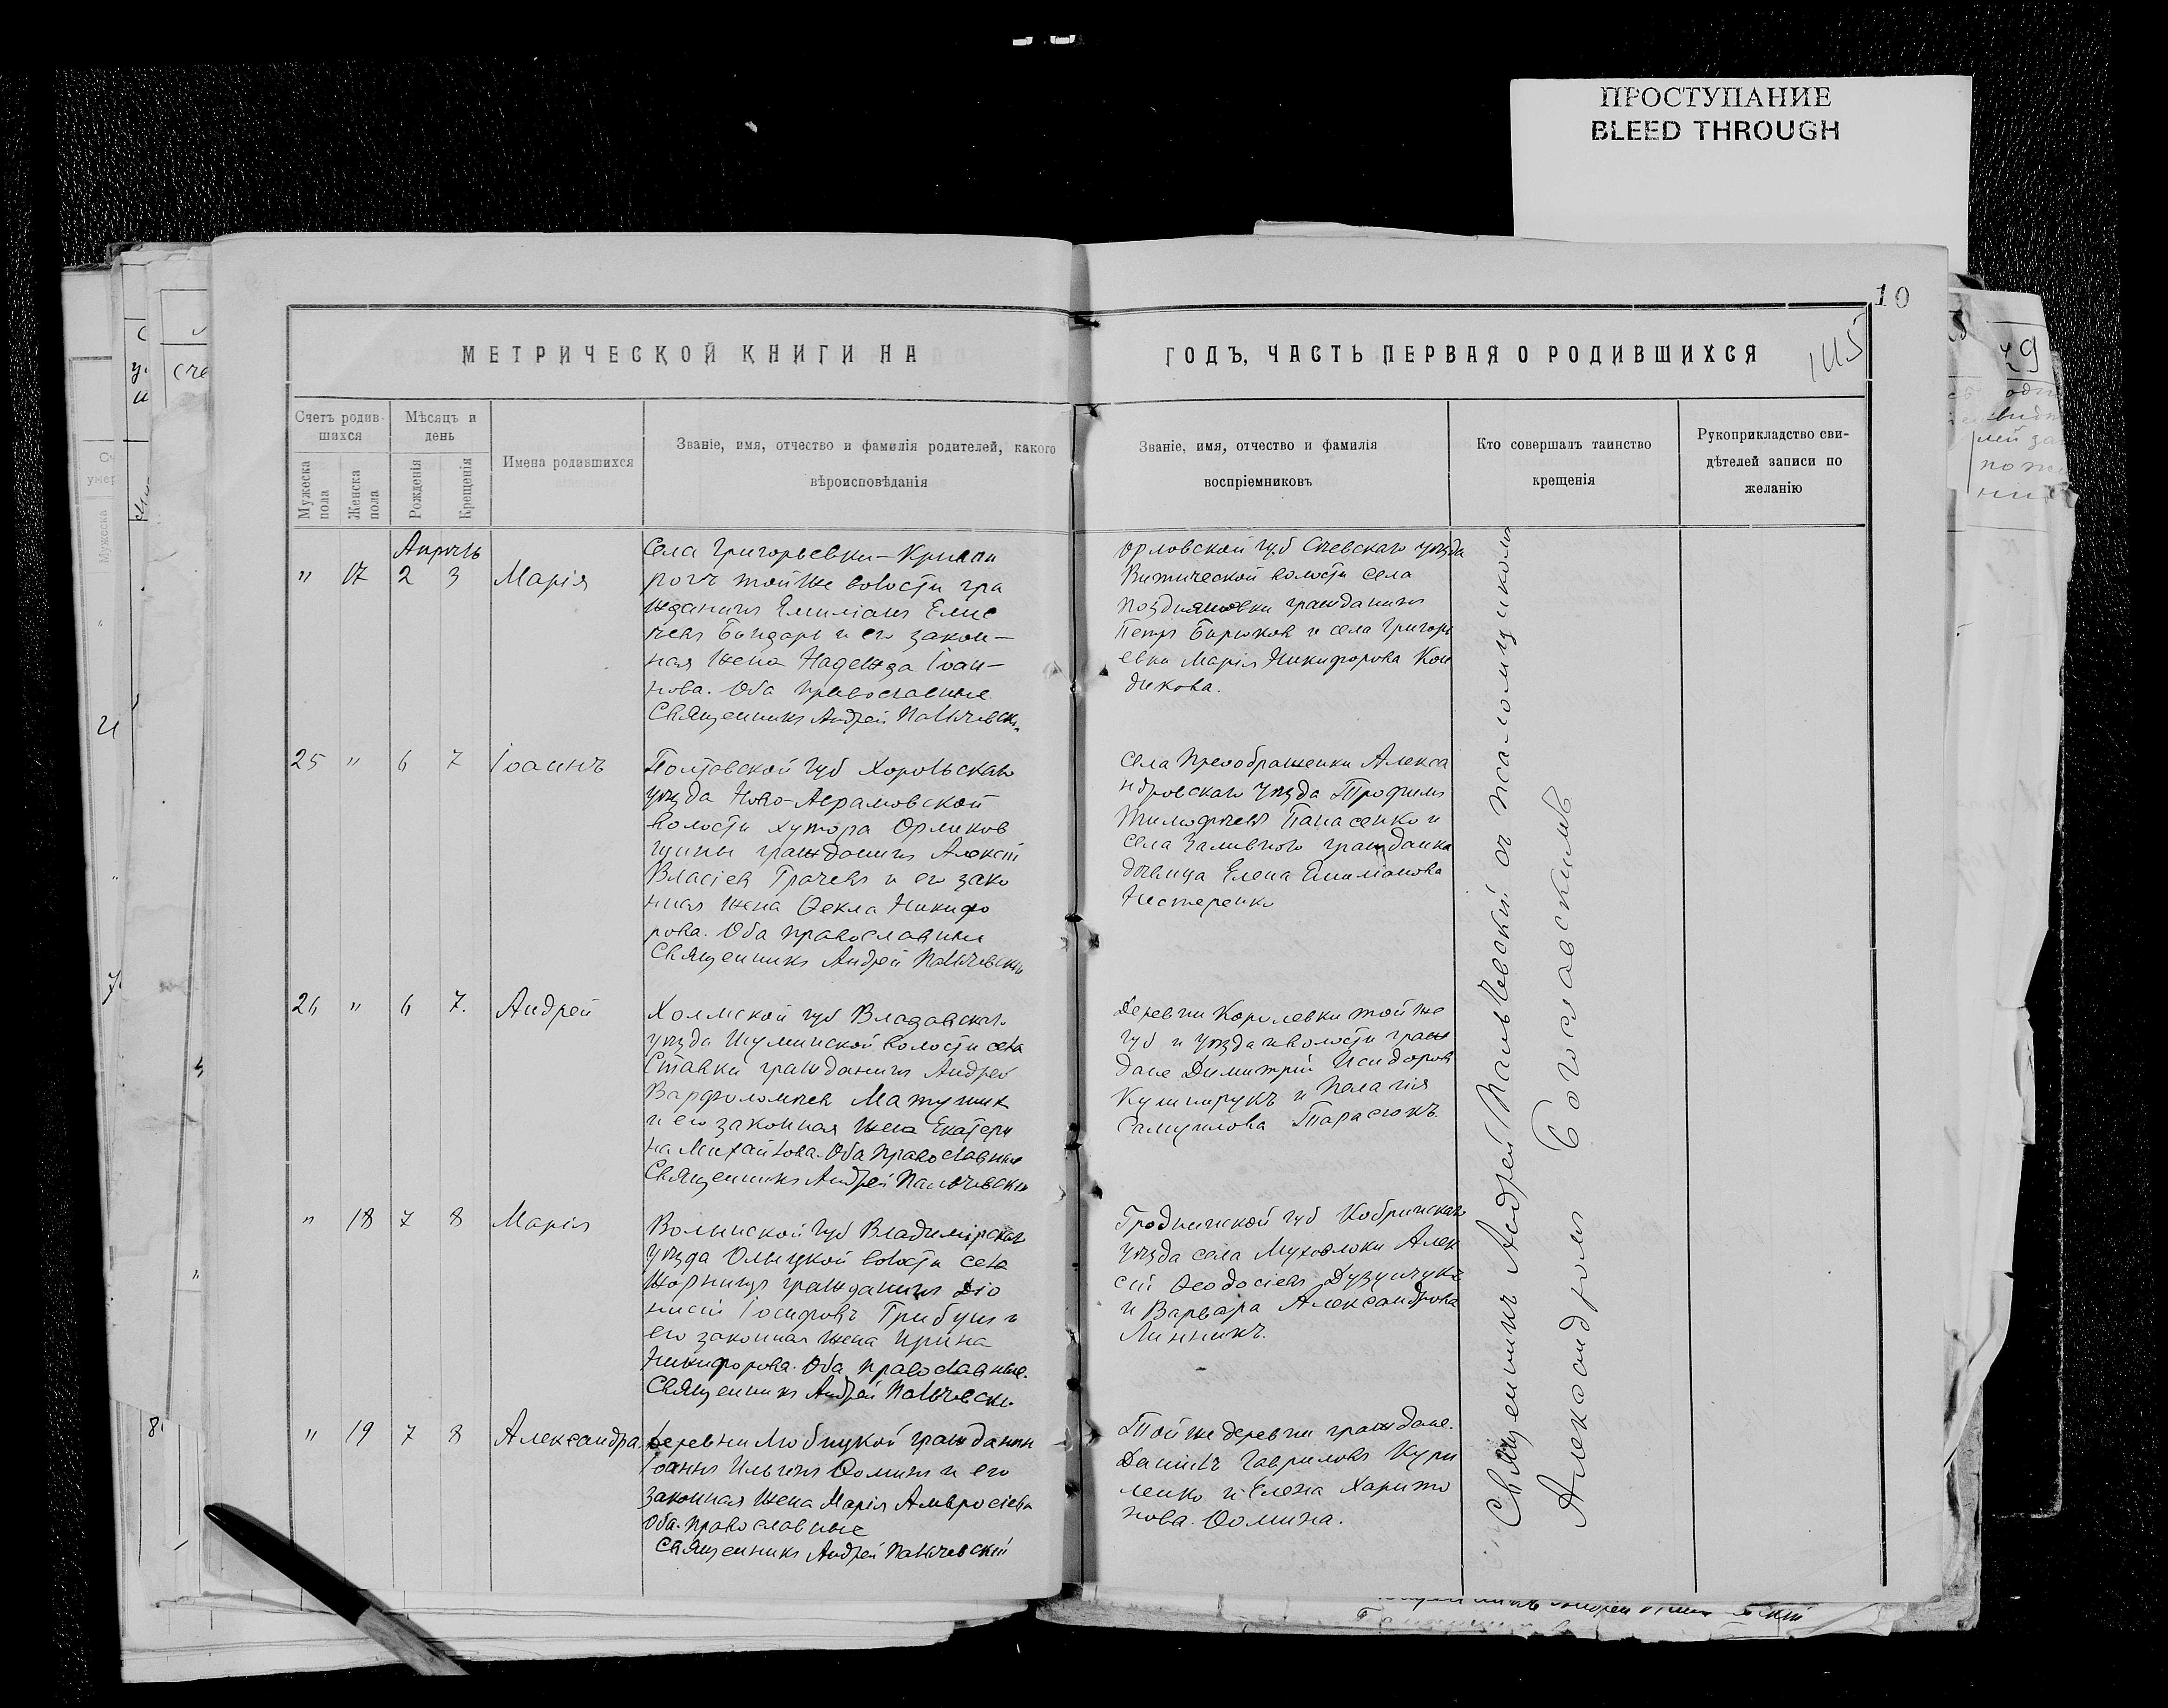 ПРОСТУПАНИЕ
BLEED THROUGH
10
МЕТРИЧЕСКОЙ КНИГИ НА
ГОДЪ, ЧАСТЬ ПЕРВАЯ О РОДИВШИХСЯ
145
Счетъ родив-
шихся
Мѣсяцъ и
день
Мужеска
пола
Женска
пола
Рожденія
Крещенія
Имена родившихся
Званіе, имя, отчество и фамилія родителей, какого
вѣроисповѣданія
Званіе, имя, отчество и фамилія
воспріемниковъ
Кто совершалъ таинство
крещенія
Рукоприкладство сви-
дѣтелей записи по
желанію
Апрѣль
" 17 2 3 Марія
Села Григорьевки-
рогъ тойже волости гра
жданинъ Емиліанъ Елис
ѣевъ Бондарь и его закон-
ная жена Надежда Іоан-
нова. Оба православные.
Священникъ Андрей Пальчевскі
Орловской губ Сѣевскаго уѣзда
волости села
гражданинъ
Петръ Бирюков и села Григорь
евки Марія Никифорова Кон
дикова.
25 " 6 7 Іоаннъ
Полтавской губ Хорольскаго
уѣзда Ново-Аврамовской
волости хутора Орликов
щины гражданинъ Алексій
Власіев Грачевъ и его зако
нная жена Ѳекла Никифо
рова. Оба православные
Священникъ Андрей Пальчевскій
Села Преображенки Алекса
ндровскаго уѣзда Трофимъ
Тимофѣевъ Панасенко и
села Заливного гражданка
дѣвица Елена Емиліанова
Нестеренко
26 " 6 7. Андрей
Холмской губ Владавскаго
уѣзда волости села
Ставки гражданинъ Андрей
Варфоломѣев Матушик
и его законная жена Екатери
на Михайлова. Оба православные
Священникъ Андрей Пальчевскі
Деревни Королевки той же
губ и уѣзда и волости граж
дане Димитрій Исидоров
Кушнирукъ и Пелагія
Самуилова Тарасюкъ.
" 18 7 8 Марія
Волынской губ Владимірскаго
уѣзда волости села
гражданинъ Діо
нисій Іосифовъ Трибунъ и
его законная жена Ирина
Никифорова. Оба православные.
Священникъ Андрей Пальчевскі.
Гродненской губ Кобринскаго
уѣзда села Алек
сій Ѳеодосіевъ
и Варвара Александрова
Линникъ.
" 19 7 8 Александра.
Деревни Любицкой гражданин
Іоаннъ Ильинъ Ѳоминъ и его
законная жена Марія Амвросіева
Оба православные
Священникъ Андрей Пальчевскій
Той же деревни граждане.
Даніилъ Гавриловъ Кури
ленко и Елена Харито
нова Ѳомина.
Священникъ Андрей Пальчевскій съ псаломщикомъ
Александромъ Богославскимъ